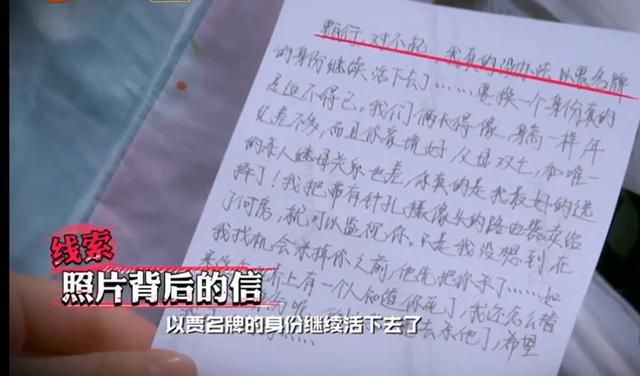 对不起 我真的没办法以贾名牌
的身份继续活下去了……要换一个身份真的
是迫不得已。我们俩长得像，身高一样，年
纪差不多，而且你家境好，父母双亡，和唯一
的亲人继母关系也差，你真的是我最好的选
择了！我把带有针孔摄像头的路由器卖给
了何房，就可以监视你。可是我没想到在
我找机会杀掉你之前，他先把你杀了……如
上有一个人知道你死了，我还怎么替
去杀他了，希望
线索
照片背后的信
以贾名牌的身份继续活下去了